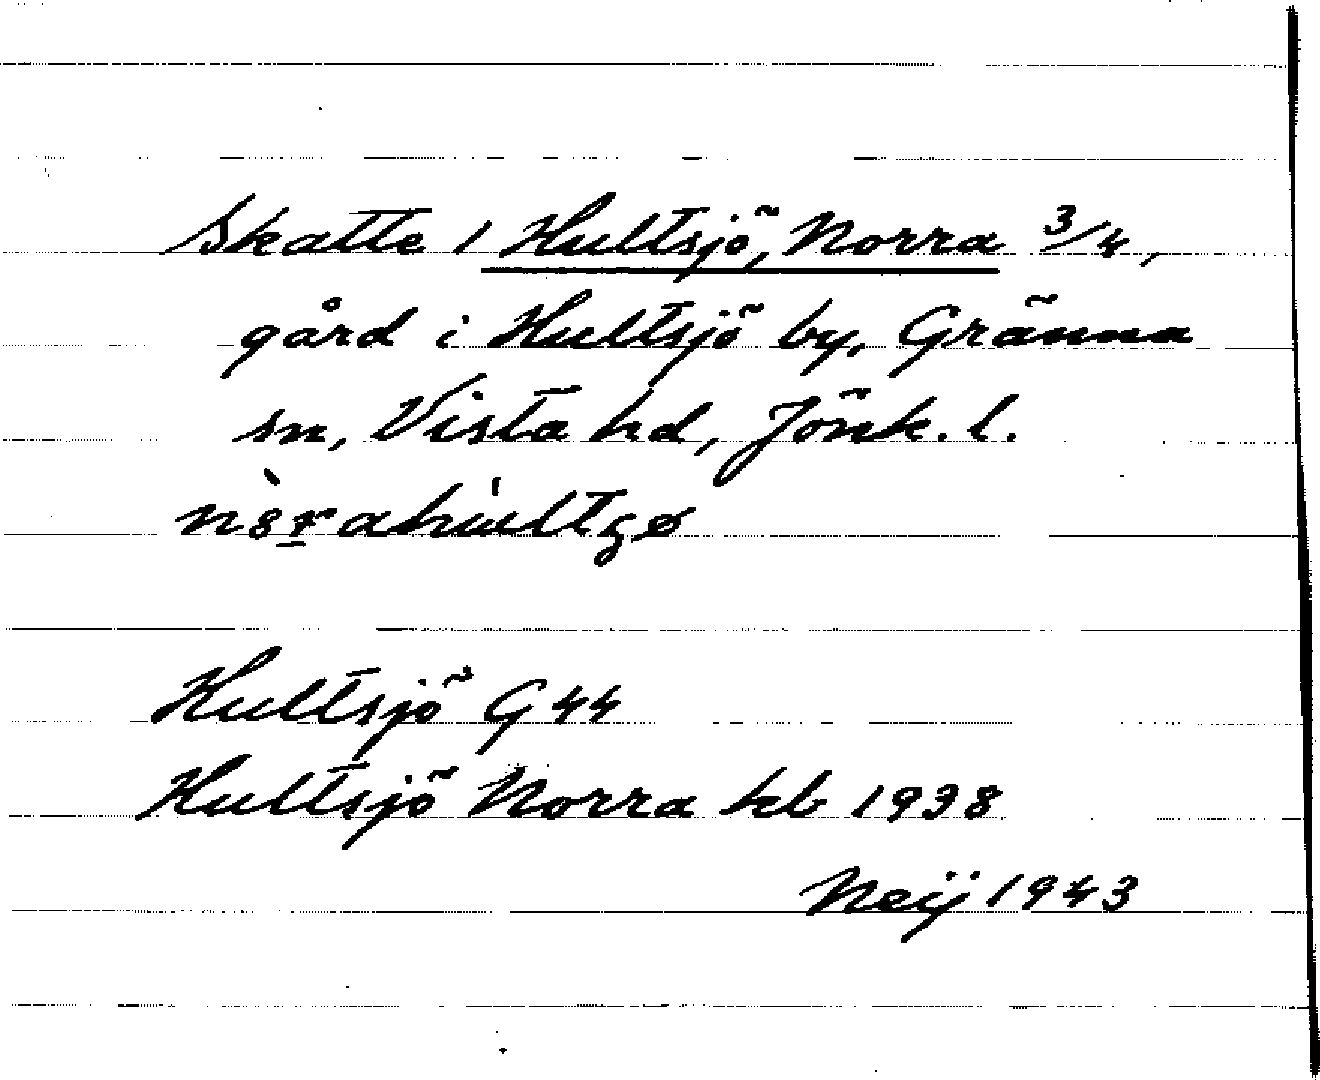 Skatte 1 Hultsjö, Norra 3/4,
gård i Hultsjö by, Gränna
sn, Vista hd, Jönk. l.
Hultsjö G 44
Hultsjö Norra kb 1938
Neij 1943